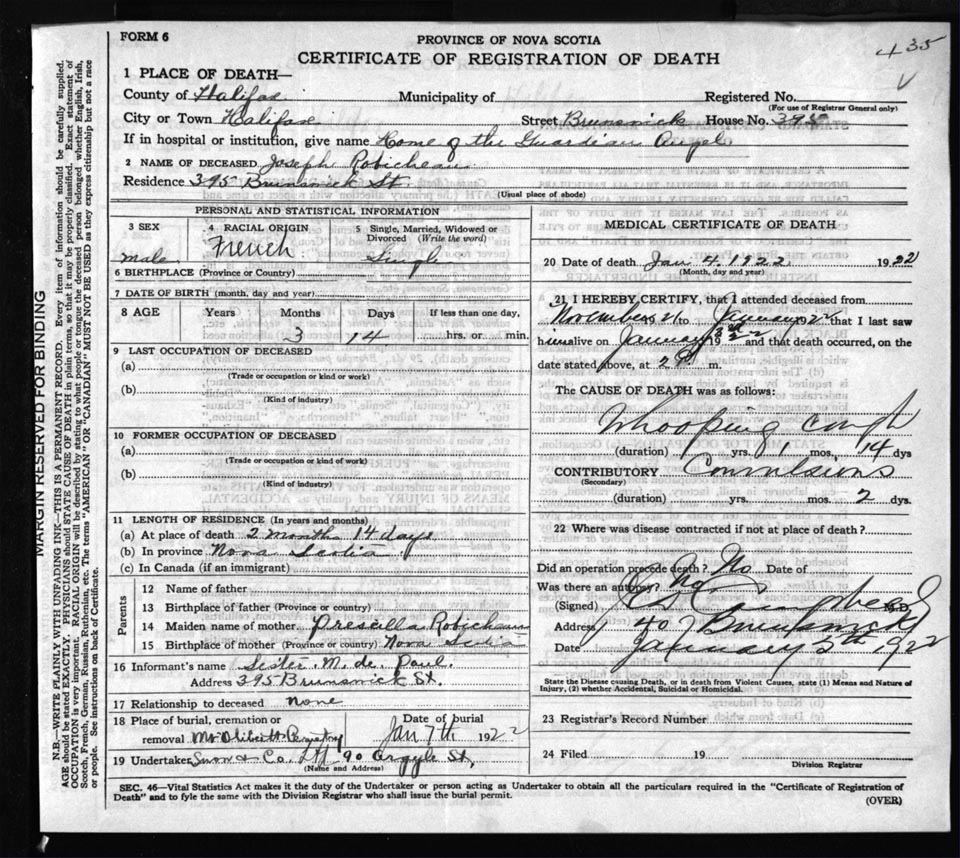 FORM 6
PROVINCE OF NOVA SCOTIA
CERTIFICATE OF REGISTRATION OF DEATH
435
1 PLACE OF DEATH—
County of Halifax Municipality of Registered No.
(For use of Registrar General only)
City or Town Halifax Street Brunswick House No. 395
If in hospital or institution, give name Home of the Guardian Angel
2 NAME OF DECEASED Joseph Robicheau
Residence 395 Brunswick St.
(Usual place of abode)
PERSONAL AND STATISTICAL INFORMATION
3 SEX
Male
4 RACIAL ORIGIN
French
5 Single, Married, Widowed or Divorced (Write the word)
Single
6 BIRTHPLACE (Province or Country)
7 DATE OF BIRTH (month, day and year)
8 AGE Years Months Days If less than one day,
3 14 hrs. or min.
9 LAST OCCUPATION OF DECEASED
(a)
(Trade or occupation or kind or work)
(b)
(Kind of industry)
10 FORMER OCCUPATION OF DECEASED
(a)
(Trade or occupation or kind of work)
(b)
(Kind of industry)
11 LENGTH OF RESIDENCE (In years and months)
(a) At place of death 2 months 14 days
(b) In province Nova Scotia
(c) In Canada (if an immigrant)
Parents
12 Name of father
13 Birthplace of father (Province or country)
14 Maiden name of mother Priscilla Robicheau
15 Birthplace of mother (Province or country) Nova Scotia
16 Informant's name Sister M. de Paul.
Address 395 Brunswick St.
17 Relationship to deceased none
18 Place of burial, cremation or removal Mt Olivet Cemetery
Date of burial Jan 7th 1922
19 Undertaker Snow & Co. Ltd 90 Argyle St,
(Name and Address)
MEDICAL CERTIFICATE OF DEATH
20 Date of death Jan 4. 1922 1922
(Month, day and year)
21 I HEREBY CERTIFY, that I attended deceased from
November 21 to January 22 that I last saw
him alive on January 3rd 1922 and that death occurred, on
date stated above, at 2 P. m.
The CAUSE OF DEATH was as follows:
Whooping cough
(duration) yrs. 1 mos. 14 dys
CONTRIBUTORY Convulsions
(Secondary)
(duration) yrs. mos. 2 dys.
22 Where was disease contracted if not at place of death?
Did an operation precede death? No Date of
Was there an autopsy? No
(Signed) Campbell M.D.
Address 407 Brunswick
Date January 5th 1922
State the Disease causing Death, or in death from Violent Causes, state (1) Means and Nature of
Injury, (2) whether Accidental, Suicidal or Homicidal.
23 Registrar's Record Number
24 Filed 19
Division Registrar
SEC. 46—Vital Statistics Act makes it the duty of the Undertaker or person acting as Undertaker to obtain all the particulars required in the "Certificate of Registration of
Death" and to fyle the same with the Division Registrar who shall issue the burial permit.
(OVER)
MARGIN RESERVED FOR BINDING
N.B.—WRITE PLAINLY WITH UNFADING INK—THIS IS A PERMANENT RECORD. Every item of information should be carefully supplied.
AGE should be stated EXACTLY. PHYSICIANS should STATE CAUSE OF DEATH in plain terms, so that it may be properly classified. Exact statement of
OCCUPATION is very important. RACIAL ORIGIN will be described by stating to what people or tongue the deceased person belonged whether English, Irish,
Scotch, French, German, Russian, Ruthenian, etc. The terms "AMERICAN" OR "CANADIAN" MUST NOT BE USED as they express citizenship but not a race
or people. See instructions on back of Certificate.